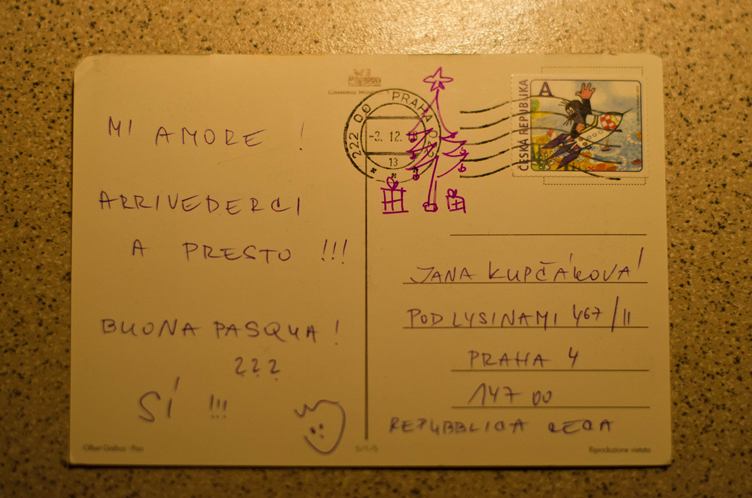 MI AMORE !
ARRIVEDERCI
A PRESTO !!!
BUONA PASQUA !
???
SÍ !!!
222 00 PRAHA 022
-3. 12.
13
ČESKÁ REPUBLIKA
A
JANA KUPČÁKOVÁ
POD LYSINAMI 467/11
PRAHA 4
147 00
REPUBBLICA CECA
Offset Grafica - Pisa
Riproduzione vietata